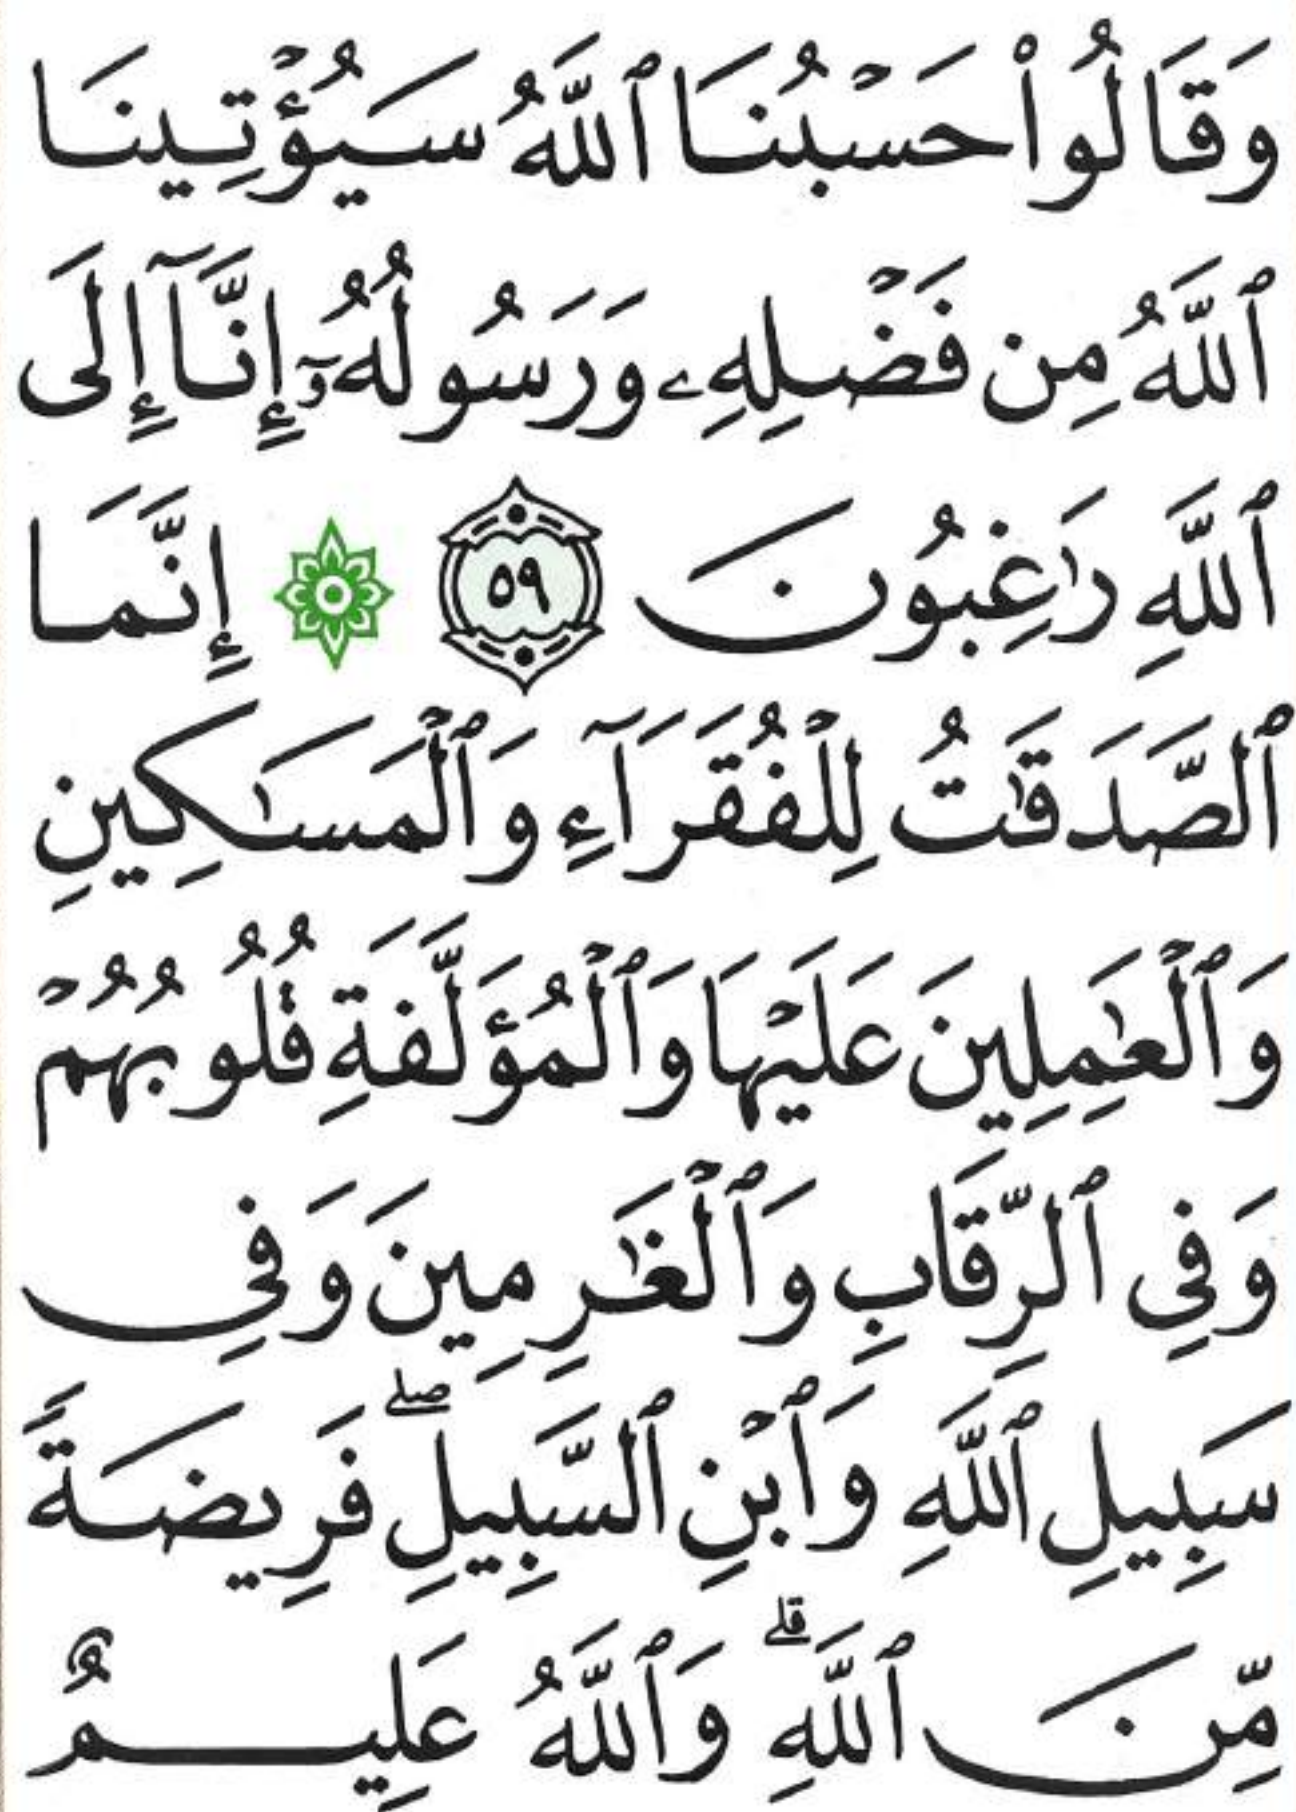 وَقَالُوا۟ حَسْبُنَا ٱللَّهُ سَيُؤْتِينَا
ٱللَّهُ مِن فَضْلِهِۦ وَرَسُولُهُۥٓ إِنَّآ إِلَى
ٱللَّهِ رَٰغِبُونَ ٥٩ ۞ إِنَّمَا
ٱلصَّدَقَٰتُ لِلْفُقَرَآءِ وَٱلْمَسَٰكِينِ
وَٱلْعَٰمِلِينَ عَلَيْهَا وَٱلْمُؤَلَّفَةِ قُلُوبُهُمْ
وَفِى ٱلرِّقَابِ وَٱلْغَٰرِمِينَ وَفِى
سَبِيلِ ٱللَّهِ وَٱبْنِ ٱلسَّبِيلِۖ فَرِيضَةً
مِّنَ ٱللَّهِۗ وَٱللَّهُ عَلِيمٌ